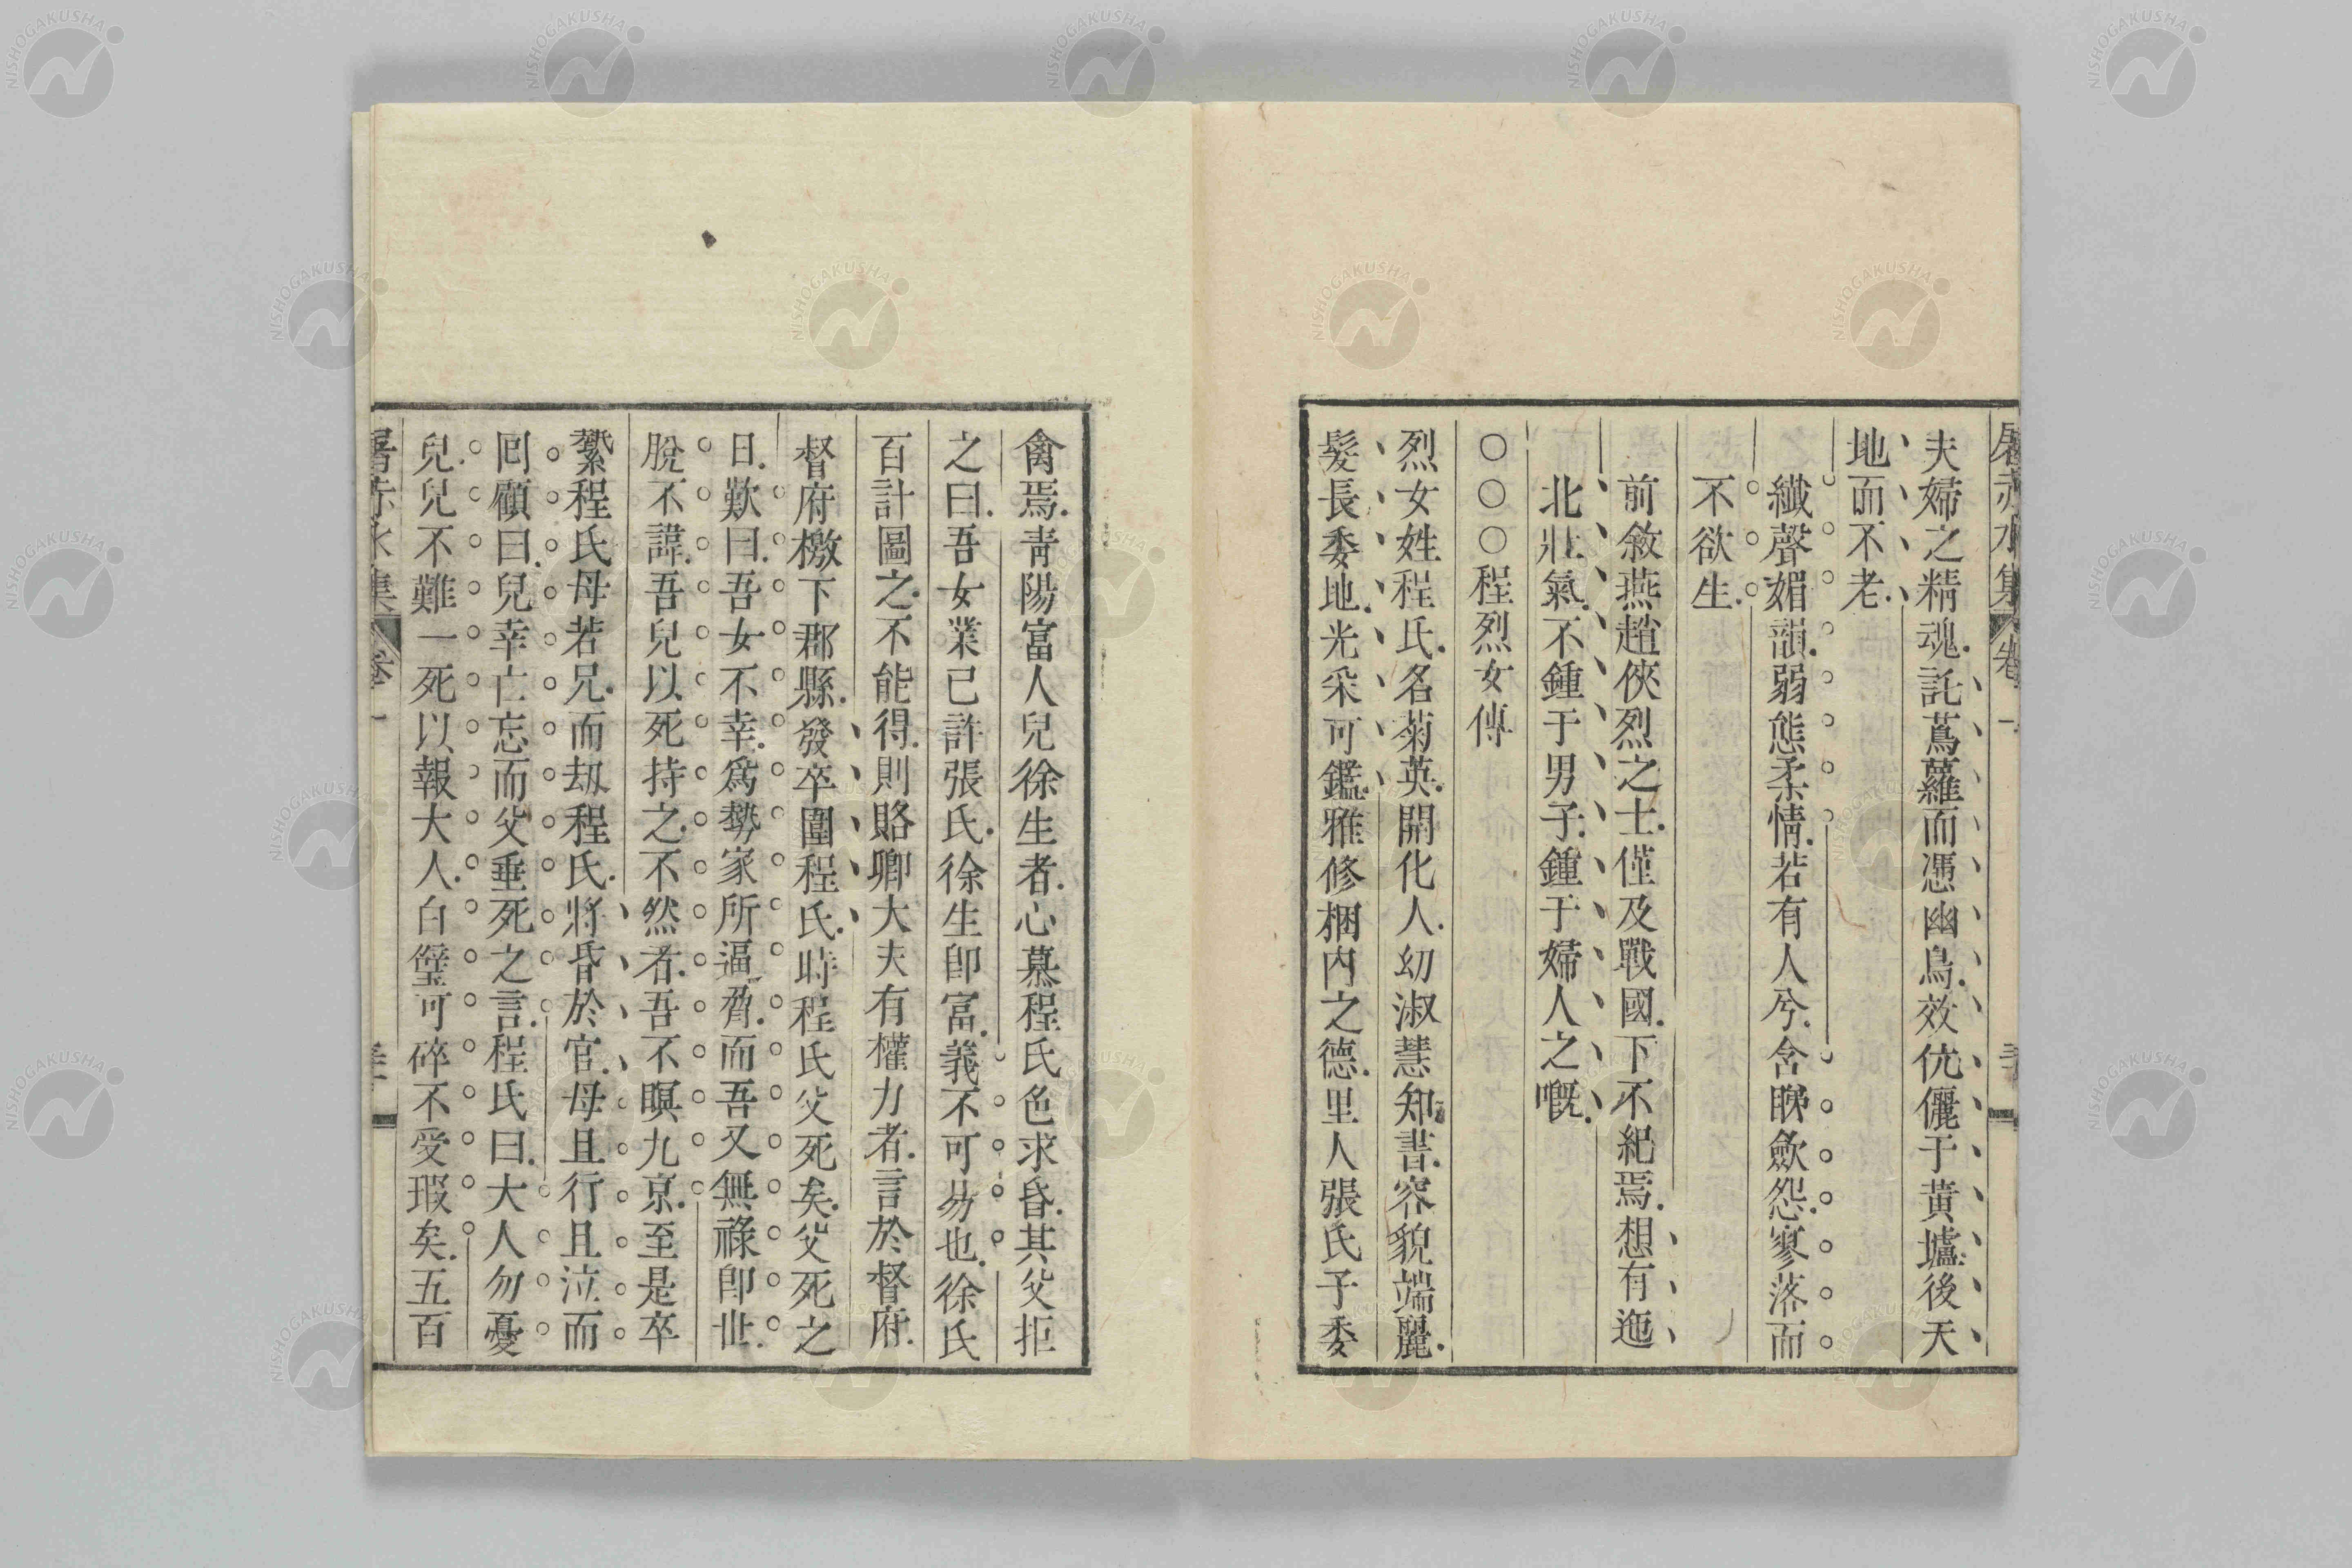 屠赤水集 卷一
夫婦之精魂託蔦蘿而憑幽鳥效伉儷于黃墟後天
地而不老
纖聲媚韻弱態柔情若有人兮含睇斂怨寥落而
不欲生
前敘燕趙俠烈之士僅及戰國下不紀焉想有迤
北壯氣不鍾于男子鍾于婦人之嘅
○○○程烈女傳
烈女姓程氏名菊英開化人幼淑慧知書容貌端麗
髮長委地光采可鑑雅修梱內之德里人張氏子委
禽焉青陽富人兒徐生者心慕程氏色求昏其父拒
之曰吾女業已許張氏徐生即富義不可易也徐氏
百計圖之不能得則賂卿大夫有權力者言於督府
督府檄下郡縣發卒圍程氏時程氏父死矣父死之
日歎曰吾女不幸爲勢家所逼脅而吾又無祿卽世
脫不諱吾兒以死持之不然者吾不瞑九京至是卒
縶程氏母若兄而刼程氏將昏於官母且行且泣而
囘顧曰兒幸亡忘而父垂死之言程氏曰大人勿憂
兒兒不難一死以報大人白璧可碎不受瑕矣五百
屠赤水集 卷一